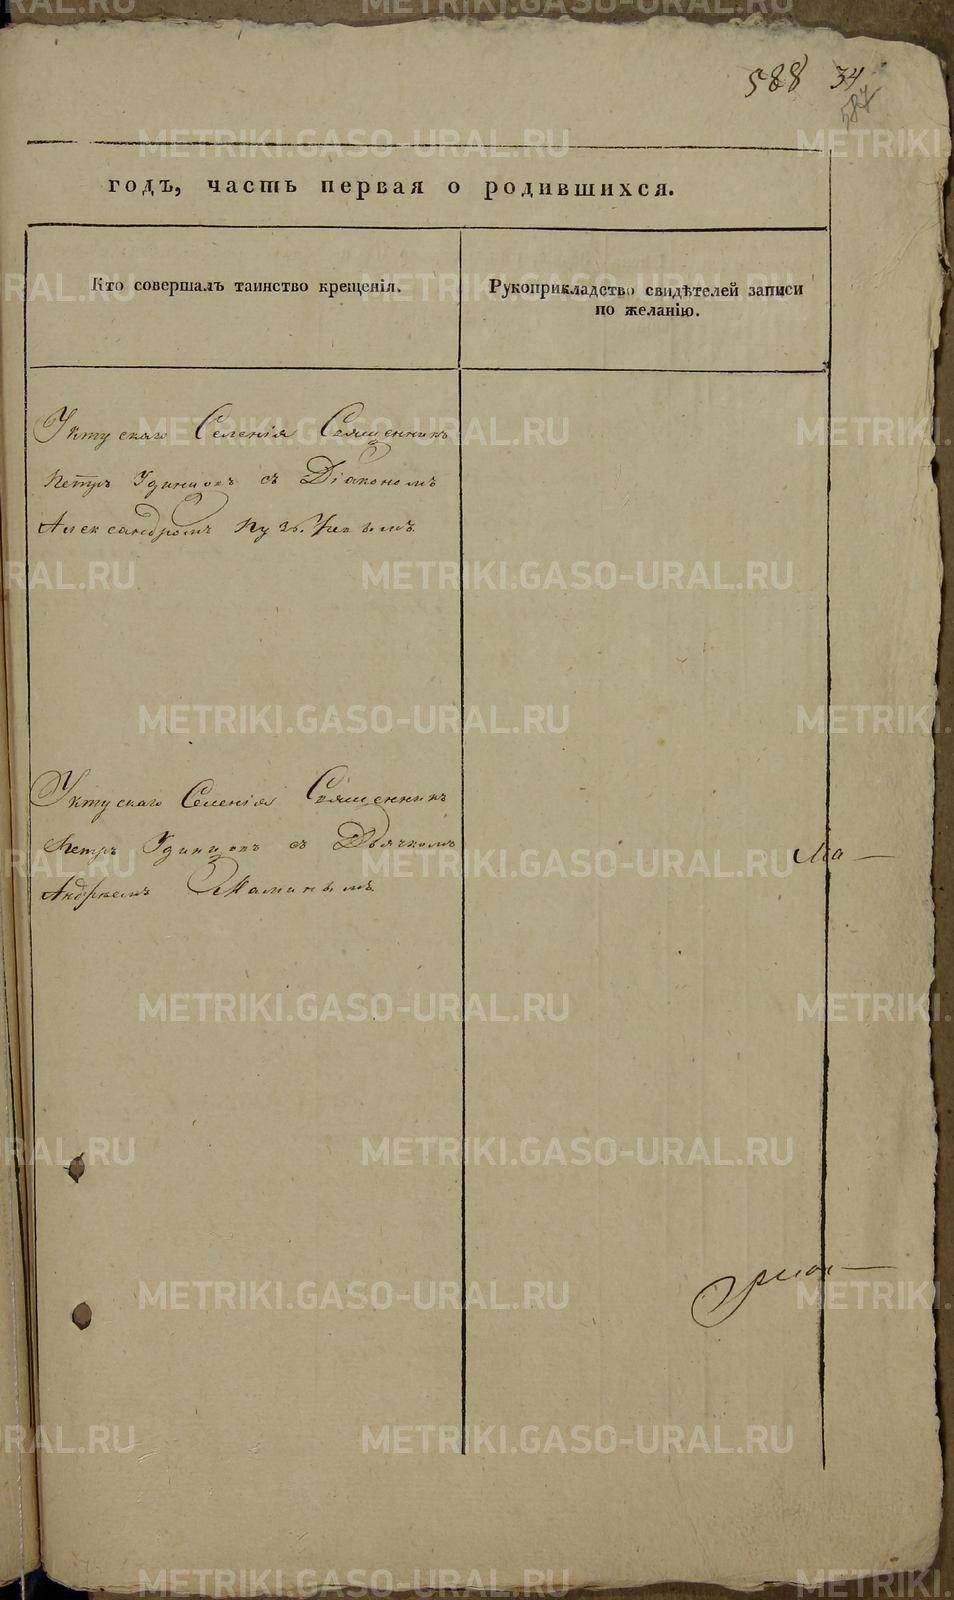 588 34
587
годъ, часть первая о родившихся.
Кто совершалъ таинство крещенія.
Рукоприкладство свидѣтелей записи
по желанію.
Уктускаго Селенія Священникъ
Петръ Удинцовъ съ Діакономъ
Александромъ
Уктускаго Селенія Священникъ
Петръ Удинцовъ съ Дьячкомъ
Андреемъ
METRIKI.GASO-URAL.RU